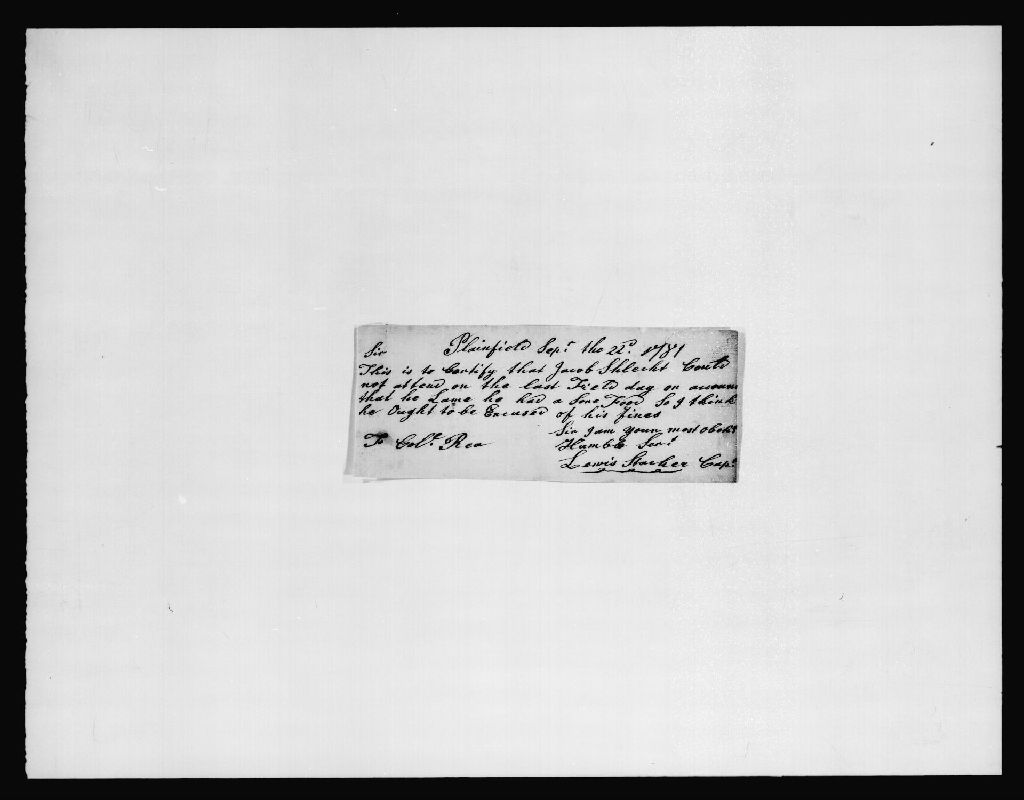 Plainfield Sepr. the 21d. 1781
Sir
This is to Certify that Jacob Shlecht Could
not attend on the last Field day on account
that he Lame he had a Sore Foot So I think
he Ought to be Excused of his fines
Sir I am your most obedt.
Humble Servt.
To Colo. Rea
Lewis Stacher Capt.